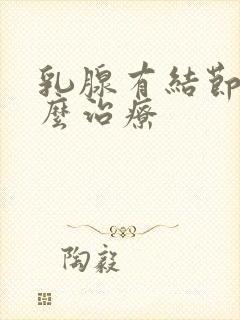 乳腺有結節
麼治療
陶毅